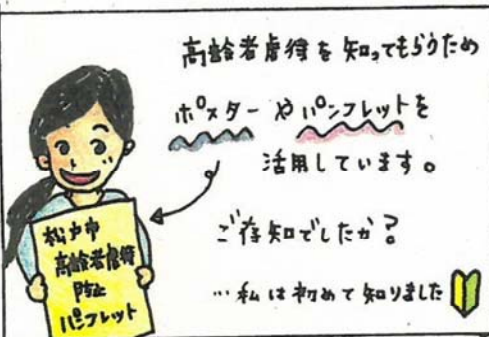 高齢者虐待を知ってもらうため
ポスターやパンフレットを
活用しています。
ご存知でしたか?
…私は初めて知りました
松戸市
高齢者虐待
防止
パンフレット